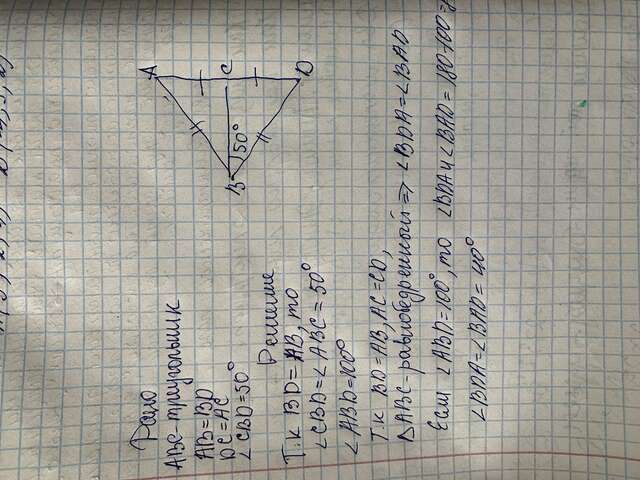 Дано
ABC-треугольник
AB=BD
DC=AC
∠CBD=50°
A
C
D
50°
B
Решение
Т.к BD=AB, то
∠CBD=∠ABC=50°
∠ABD=100°
Т.к BD=AB, AC=CD,
ΔABC-равнобедренный⇒ ∠BDA=∠BAD
Если ∠ABD=100°, то ∠BDA и ∠BAD=180-100=
∠BDA=∠BAD=40°